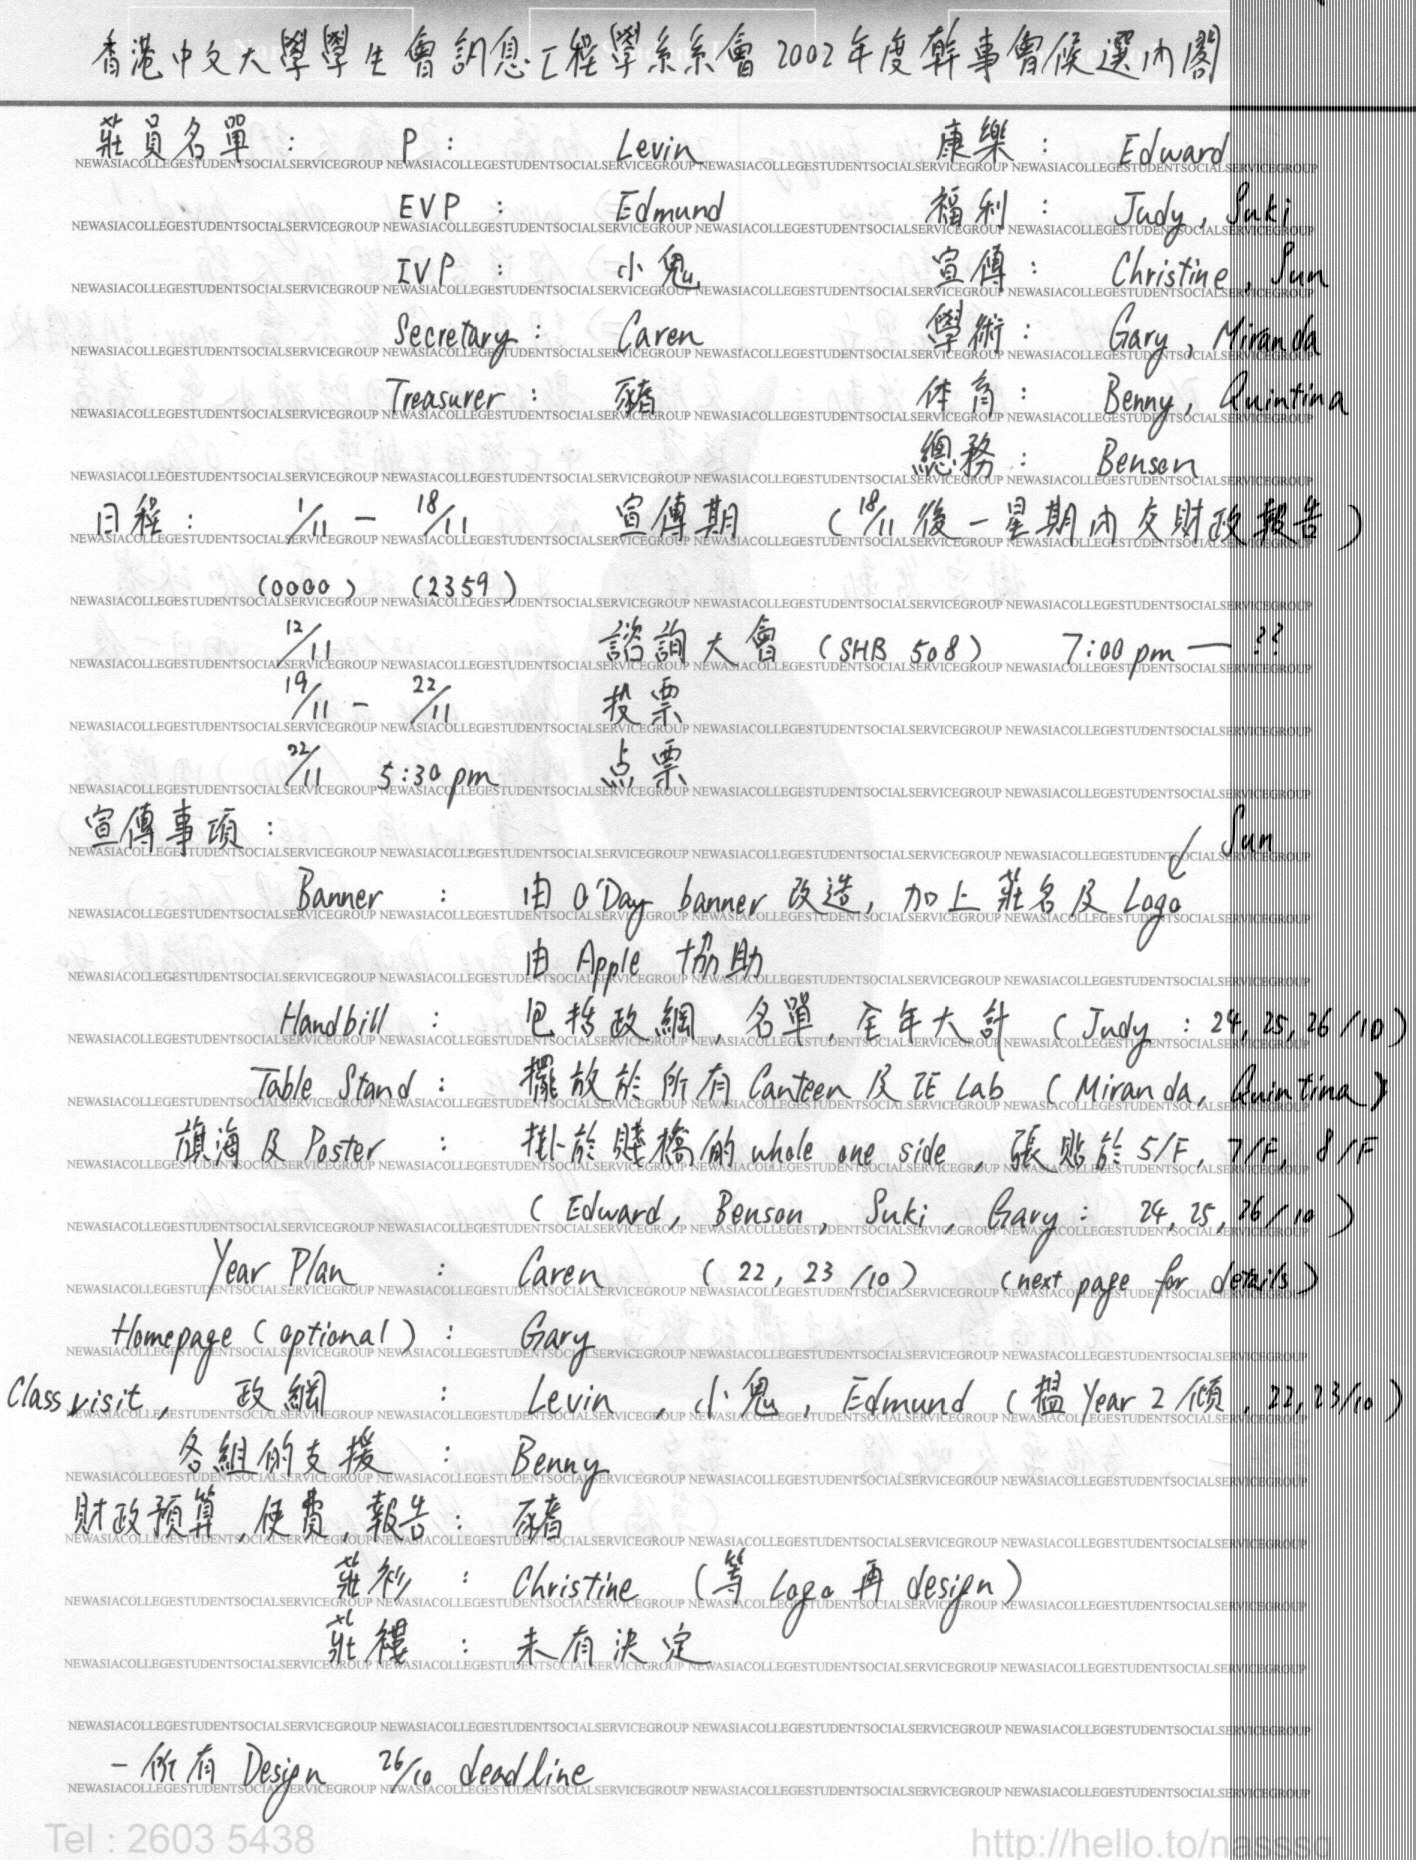 香港中文大學學生會訊息工程學系系會2002年度幹事會候選內閣
莊員名單: P: Levin 康樂: Edward
NEWASIACOLLEGESTUDENTSOCIALSERVICEGROUP NEWASIACOLLEGESTUDENTSOCIALSERVICEGROUP NEWASIACOLLEGESTUDENTSOCIALSERVICEGROUP NEWASIACOLLEGESTUDENTSOCIALSERVICEGROUP
EVP: Edmund 福利: Judy, Suki
IVP: 小鬼 宣傳: Christine, Sun
Secretary: Caren 學術: Gary, Miranda
Treasurer: 豬 体育: Benny, Quintina
總務: Benson
日程: 1/11 - 18/11 宣傳期 (18/11 後一星期內交財政報告)
(0000) (2359)
12/11 諮詢大會 (SHB 508) 7:00 pm — ??
19/11 - 22/11 投票
22/11 5:30 pm 点票
宣傳事項: Sun
Banner: 由 O'Day banner 改造, 加上莊名及 Logo
由 Apple 協助
Handbill: 包括政綱, 名單, 全年大計 (Judy: 24, 25, 26/10)
Table Stand: 擺放於所有 Canteen 及 IE Lab (Miranda, Quintina)
旗海及 Poster: 掛於賤橋的 whole one side, 張貼於 5/F, 7/F, 8/F
(Edward, Benson, Suki, Gary: 24, 25, 26/10)
Year Plan: Caren (22, 23/10) (next page for details)
Homepage (optional): Gary
Class visit, 政綱: Levin, 小鬼, Edmund (搵 Year 2 傾, 22, 23/10)
各組的支援: Benny
財政預算, 使費, 報告: 豬
莊衫: Christine (等 Logo 再 design)
莊褸: 未有決定
- 所有 Design 26/10 deadline
Tel : 2603 5438 http://hello.to/nasssg